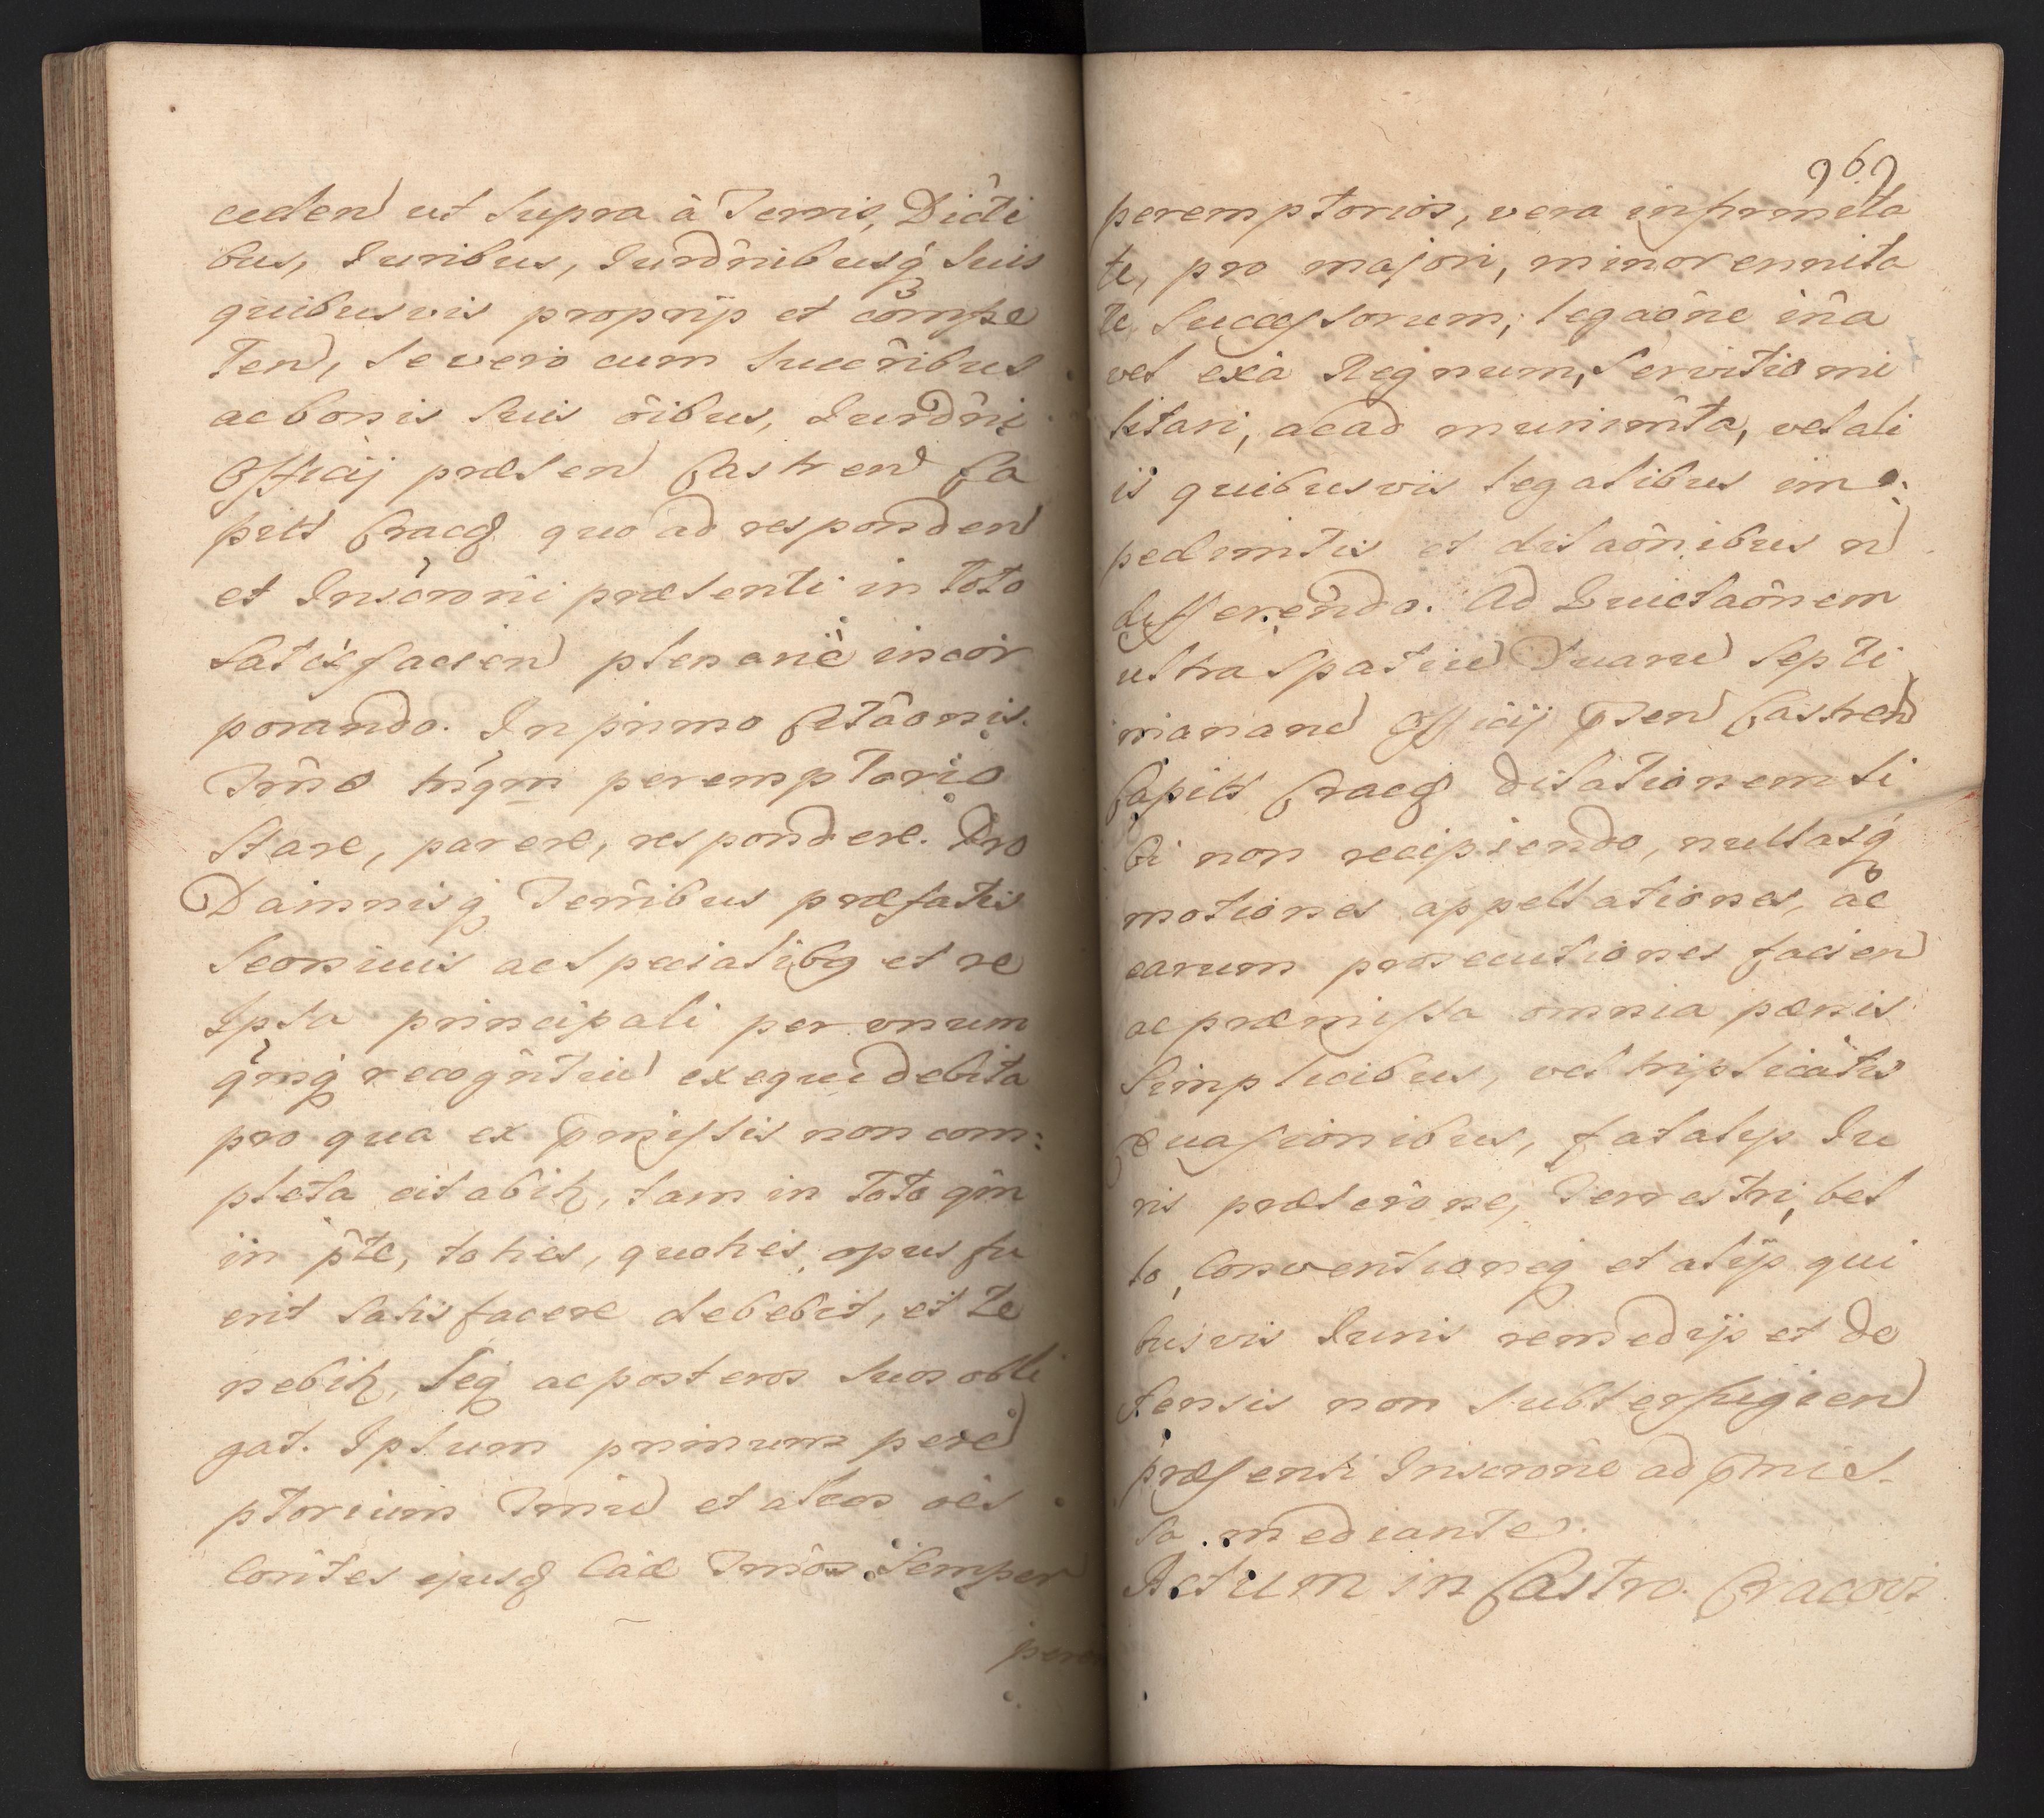 ceden ut supra à Terris, Dicti
bus, Iuribus, Iurdn̂ibusq́ suis
quibusvis proprijs et com̂pe
ten, se vero cum sucĉribus
ac bonis suis ôibus, Iurdn̂i
Officij præsen Castren Ca
pitt Cracq̃ quo ad responden
et Inscrôni præsenti in toto
satisfacien plenariè incor
porando. In primo Ctâonis
Trm̂o trigm peremptorio
stare, parere, respondere. Pro
Damnisq́ Terr̂ibus præfatis
seorsiuis ac specialibq et re
ipsa principali per vnum
qmq́ recogn̂tiu exequi debita
pro qua ex p̃missis non com:
pleta citabitꝛ, tam in toto qm̂
in p̂te, toties, quoties opus fu
erit satisfacere debebit, et te
nebitꝛ, seq́ ac posteros suos obli
gat. Ipsum primum pere
ptorium Trmiu et alios oês
Con̂tes ejusq̃ Câæ Trm̂os semper
perem
969
peremptorios, vera infirmita
te, pro majori, minorennita
te, Successorum, legaône in̂a
vel exâ Regnum, Servitio mi
litari, ac ad munim̂ta, vel ali
is quibusvis legalibus im:
pedimtis et dilaôn̂ibus n
differendo. Ad Quietaônem
ultra spatiu duaru Septi
manaru Officij p̃sen Castren
Capitt Cracq̃ dilationem si
bi non recipiendo, nullasq́
motiones appellationes, ac
earum prosecutiones facien
ac præmissa omnia pœnis
simplicibus, vel triplicatis
Euasionibus, fatalijs Iu
ris præscrône, Terrestri, bel
lo, Conventioneq́ et alijs qui
busvis Iuris remedijs et de
fensis non subterfugien
præsenti Inscrône ad p̃mis
sa mediante.
Actum in Castro Cracovi